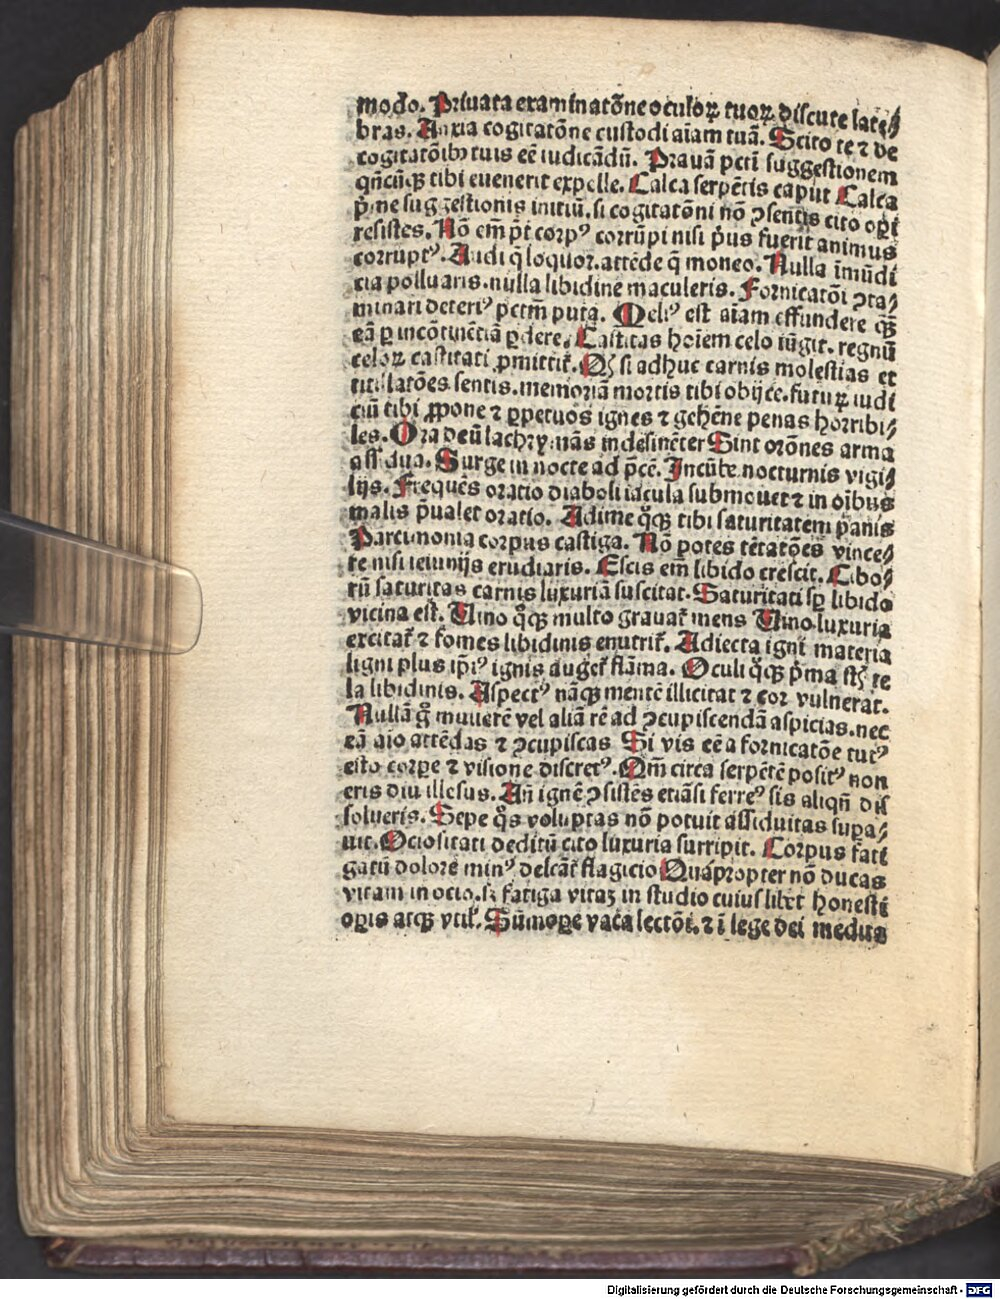 modo. Priuata examinatōne oculoꝝ tuoꝝ discute late⸗
bras. Anxia cogitatōne custodi aīam tuā. Scito te ⁊ de
cogitatōibꝫ tuis eē iudicādū. Prauā pcti suggestionem
qn̄cūqꝫ tibi euenerit expelle. Calca serpētis caput Calca
p̄ue suggestionis initiū. si cogitatōni nō ꝯsentis cito oꝑi
resistes. Nō em̄ p̄t corpꝰ corrūpi nisi p̄us fuerit animus
corruptꝰ. Audi q̄ loquor. attēde q̄ moneo. Nulla īmūdi
cia polluaris. nulla libidine maculeris. Fornicatōi ꝯta⸗
minari deteriꝰ pctm̄ puta. Meliꝰ est aīam effundere qꝫ̄
eā ꝑ incōtinētiā ꝑdere. Castitas hoīem celo iūgit. regnū
celoꝝ castitati ꝓmittit᷑. Qꝫ si adhuc carnis molestias et
titillatōes sentis. memoriā mortis tibi obijce. futuꝝ iudi
ciū tibi ꝓpone ⁊ ꝑpetuos ignes ⁊ gehēne penas horribi⸗
les. Ora deū lachrymās indesinēter Sint orōnes arma
assidua. Surge in nocte ad p̄cē. Incūbe nocturnis vigi⸗
lijs. Frequēs oratio diaboli iacula submouet ⁊ in oībus
malis p̄ualet oratio. Adime qꝫqꝫ tibi saturitatem panis
Parcimonia corpus castiga. Nō potes tētatōes vince⸗
re nisi ieiunijs erudiaris. Escis em̄ libido crescit. Cibo⸗
rū saturitas carnis luxuriā suscitat. Saturitati sꝑ libido
vicina est. Uino qꝫqꝫ multo grauat᷑ mens Uino luxuria
excitat᷑ ⁊ fomes libidinis enutrit᷑. Adiecta igni materia
ligni plus ipīꝰ ignis auget᷑ flāma. Oculi qꝫqꝫ p̄ma st̄ te
la libidinis. Aspectꝰ nāqꝫ mentē illicitat ⁊ cor vulnerat.
Nullā gͦ mulierē vel aliā rē ad ꝯcupiscendā aspicias. nec
eā aīo attēdas ⁊ ꝯcupiscas Si vis eē a fornicatōe tutꝰ
esto corꝑe ⁊ visione discretꝰ. Qm̄ circa serpētē positꝰ non
eris diu illesus. An̄ ignē ꝯsistēs etiāsi ferreꝰ sis aliqn̄ dis
solueris. Sepe q̊s voluptas nō potuit assiduitas suꝑa⸗
uit. Ociositati deditū cito luxuria surripit. Corpus fati
gatū dolore minꝰ delcat᷑ flagicio Quāpropter nō ducas
vitam in ocio. sꝫ fatiga vitaꝫ in studio cuiuslibet honesti
oꝑis atqꝫ vtil᷑. Sūmoꝑe vaca lectōi. ⁊ ī lege dei medita
Digitalisierung gefördert durch die Deutsche Forschungsgemeinschaft - DFG